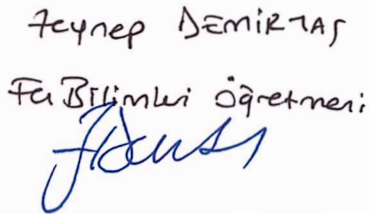 Zeynep DEMİRTAŞ
Fen Bilimleri Öğretmeni